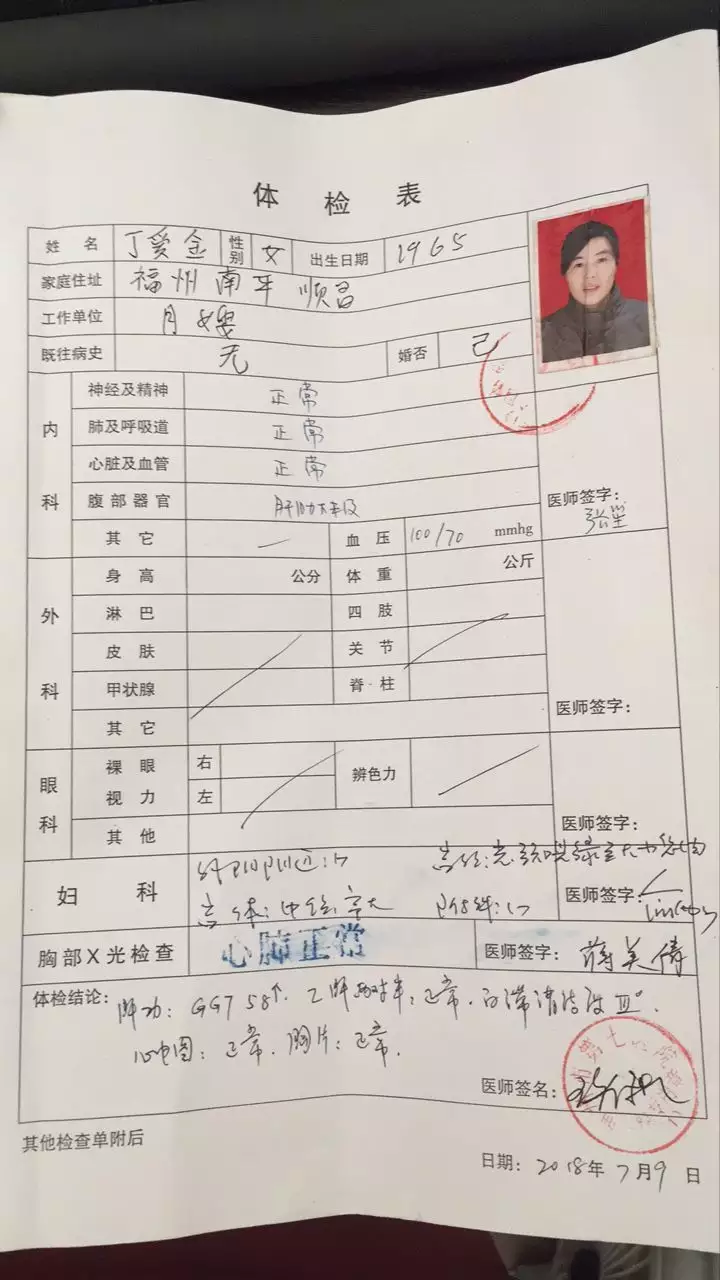 体检表
姓名 丁爱金 性别 女 出生日期 1965
家庭住址 福州南平顺昌
工作单位 月嫂
既往病史 无 婚否 已
内科
神经及精神 正常
肺及呼吸道 正常
心脏及血管 正常
腹部器官
医师签字:
其它 — 血压 100/70 mmhg
外科
身高 公分 体重 公斤
淋巴 四肢
皮肤 关节
甲状腺 脊柱
其它
医师签字:
眼科
裸眼视力 右 左 辨色力
其他
医师签字:
妇科
医师签字:
胸部X光检查 心肺正常 医师签字: 蒋美倩
体检结论: 肝功: GGT 58↑. 乙肝两对半: 正常. 白带清洁度 III°.
心电图: 正常. 胸片: 正常.
医师签名:
其他检查单附后
日期: 2018年7月9日